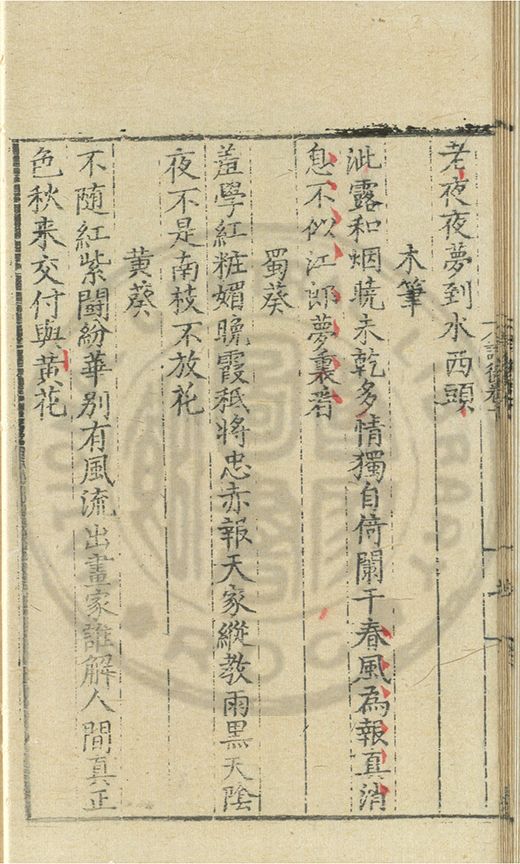 老夜夜夢到水西頭
木筆
泚露和烟曉未乾多情獨自倚闌干春風為報真消
息不似江郎夢裏看
蜀葵
羞學紅粧媚晚霞秪將忠赤報天家縱教雨黒天隂
夜不是南枝不放花
黃葵
不随紅紫閙紛華别有風流出畫家誰解人間真正
色秋来交付與黄花